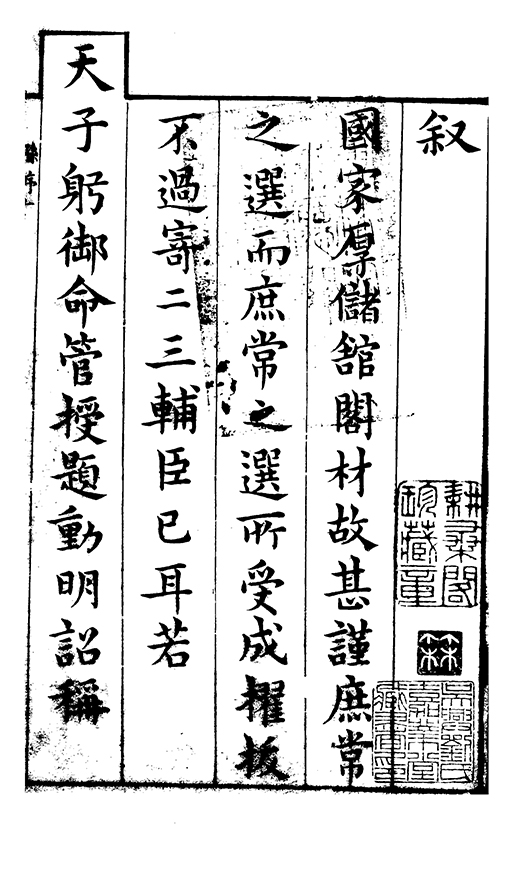 叙
國家厚儲舘閣材故甚謹庶常
之選而庶常之選所受成擢拔
不過寄二三輔臣已耳若
天子躬御命管授題動明詔稱
吳興劉氏
嘉業堂
藏書印